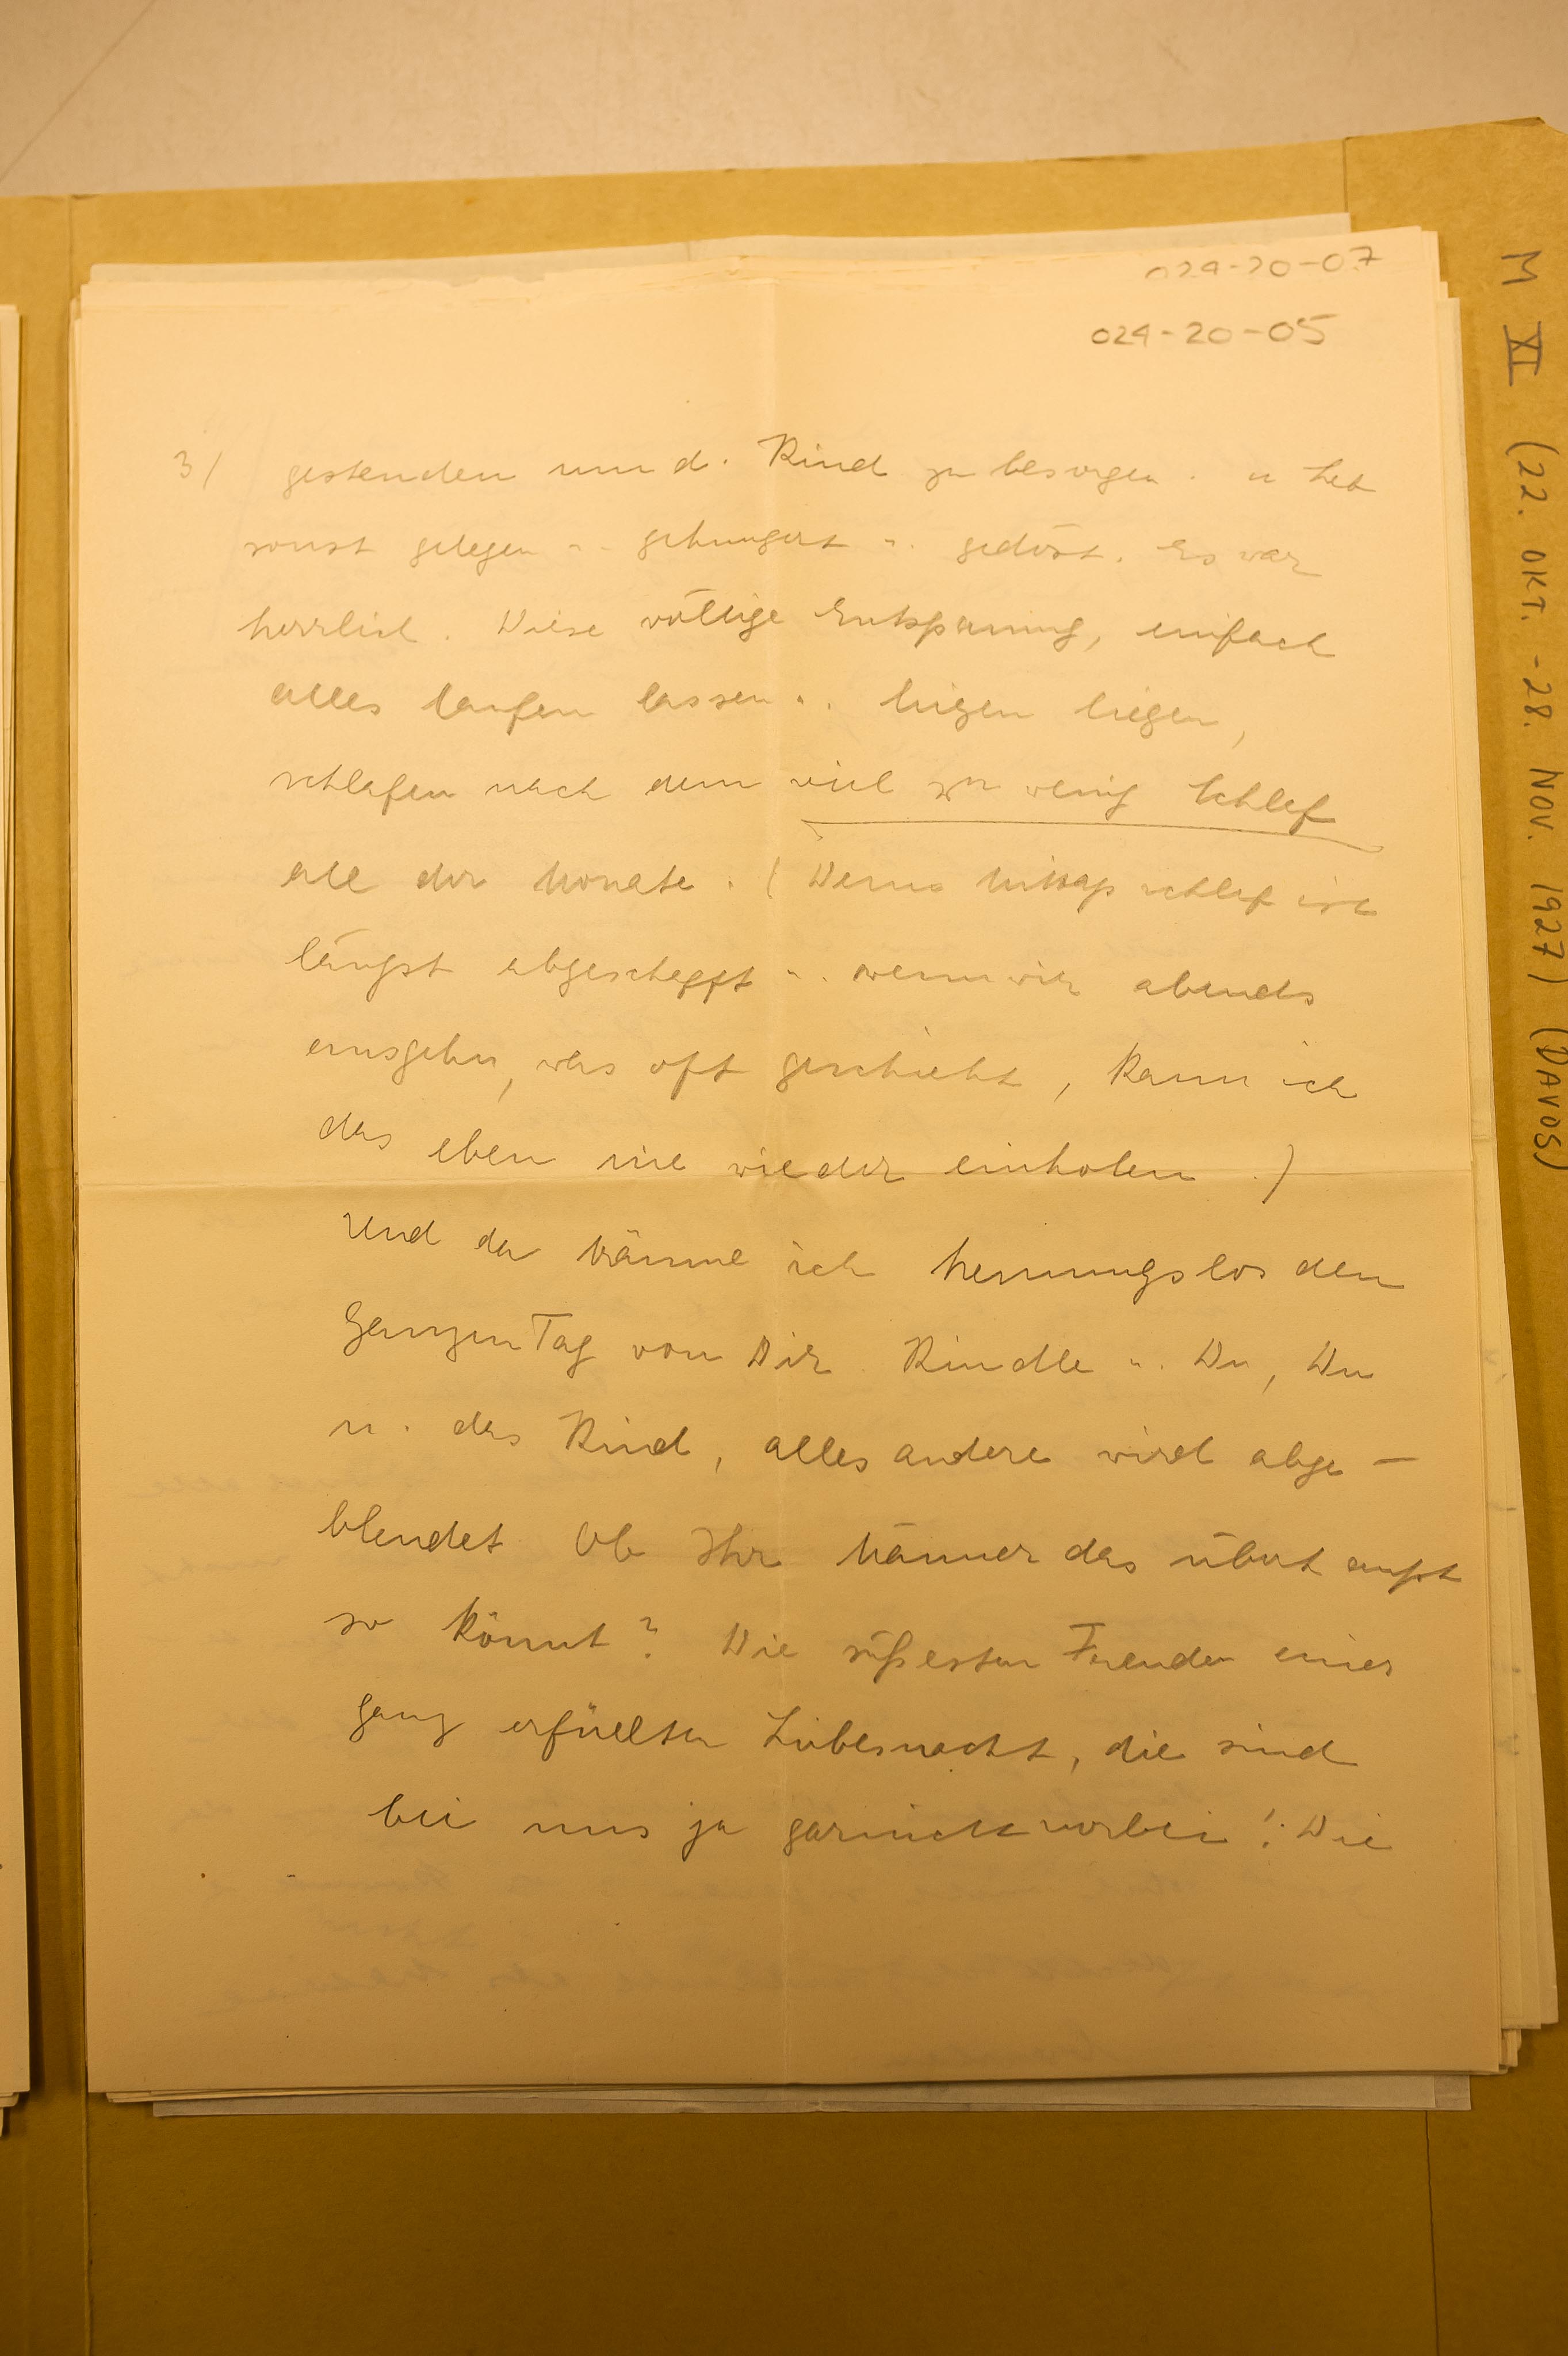 024-20-07
024-20-05
3/ gestanden um d. Kind zu besorgen. u hab
sonst gelegen u. gehungert u. gedöst. Es war
herrlich. Diese völlige Entspannung, einfach
alles laufen lassen u. liegen liegen,
schlafen nach dem viel zu wenig Schlaf
all der Monate. (Denn Mittagsschlaf ist
längst abgeschafft u. wenn wir abends
ausgehn, was oft geschieht, kann ich
das eben nie wieder einholen.)
Und da träume ich hemmungslos den
ganzen Tag von Dir Kindle u. Du, Du
u. das Kind, alles andere wird abge-
blendet Ob Ihr Männer das überhaupt
so könnt? Die süßesten Freuden einer
ganz erfüllten Liebesnacht, die sind
bei uns ja garnicht vorbei! Die
M XI (22. OKT. - 28. NOV. 1927) (DAVOS)